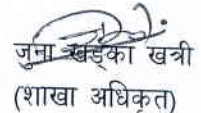 जुना खड्का खत्री
(शाखा अधिकृत)